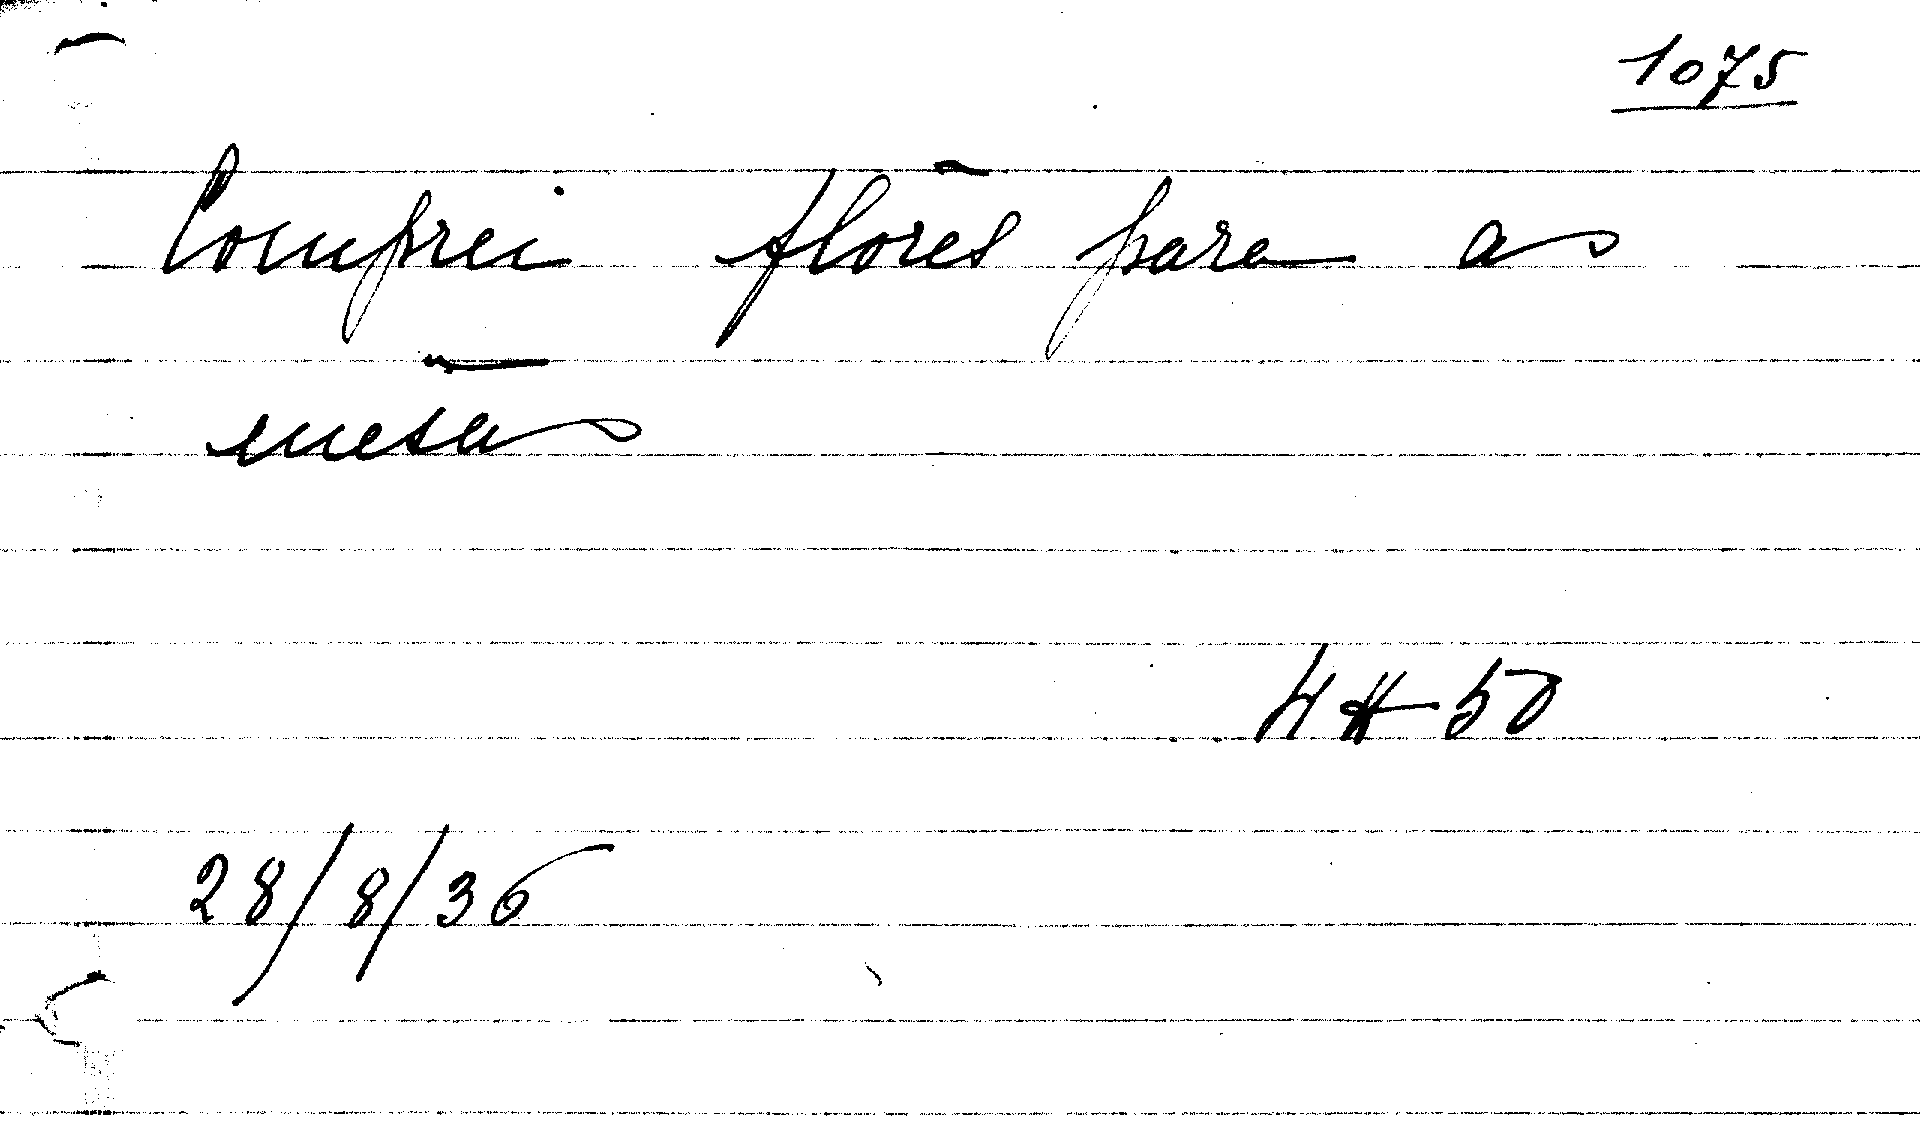 1075
Comprei flores para as
mesas
4#50
28/8/36